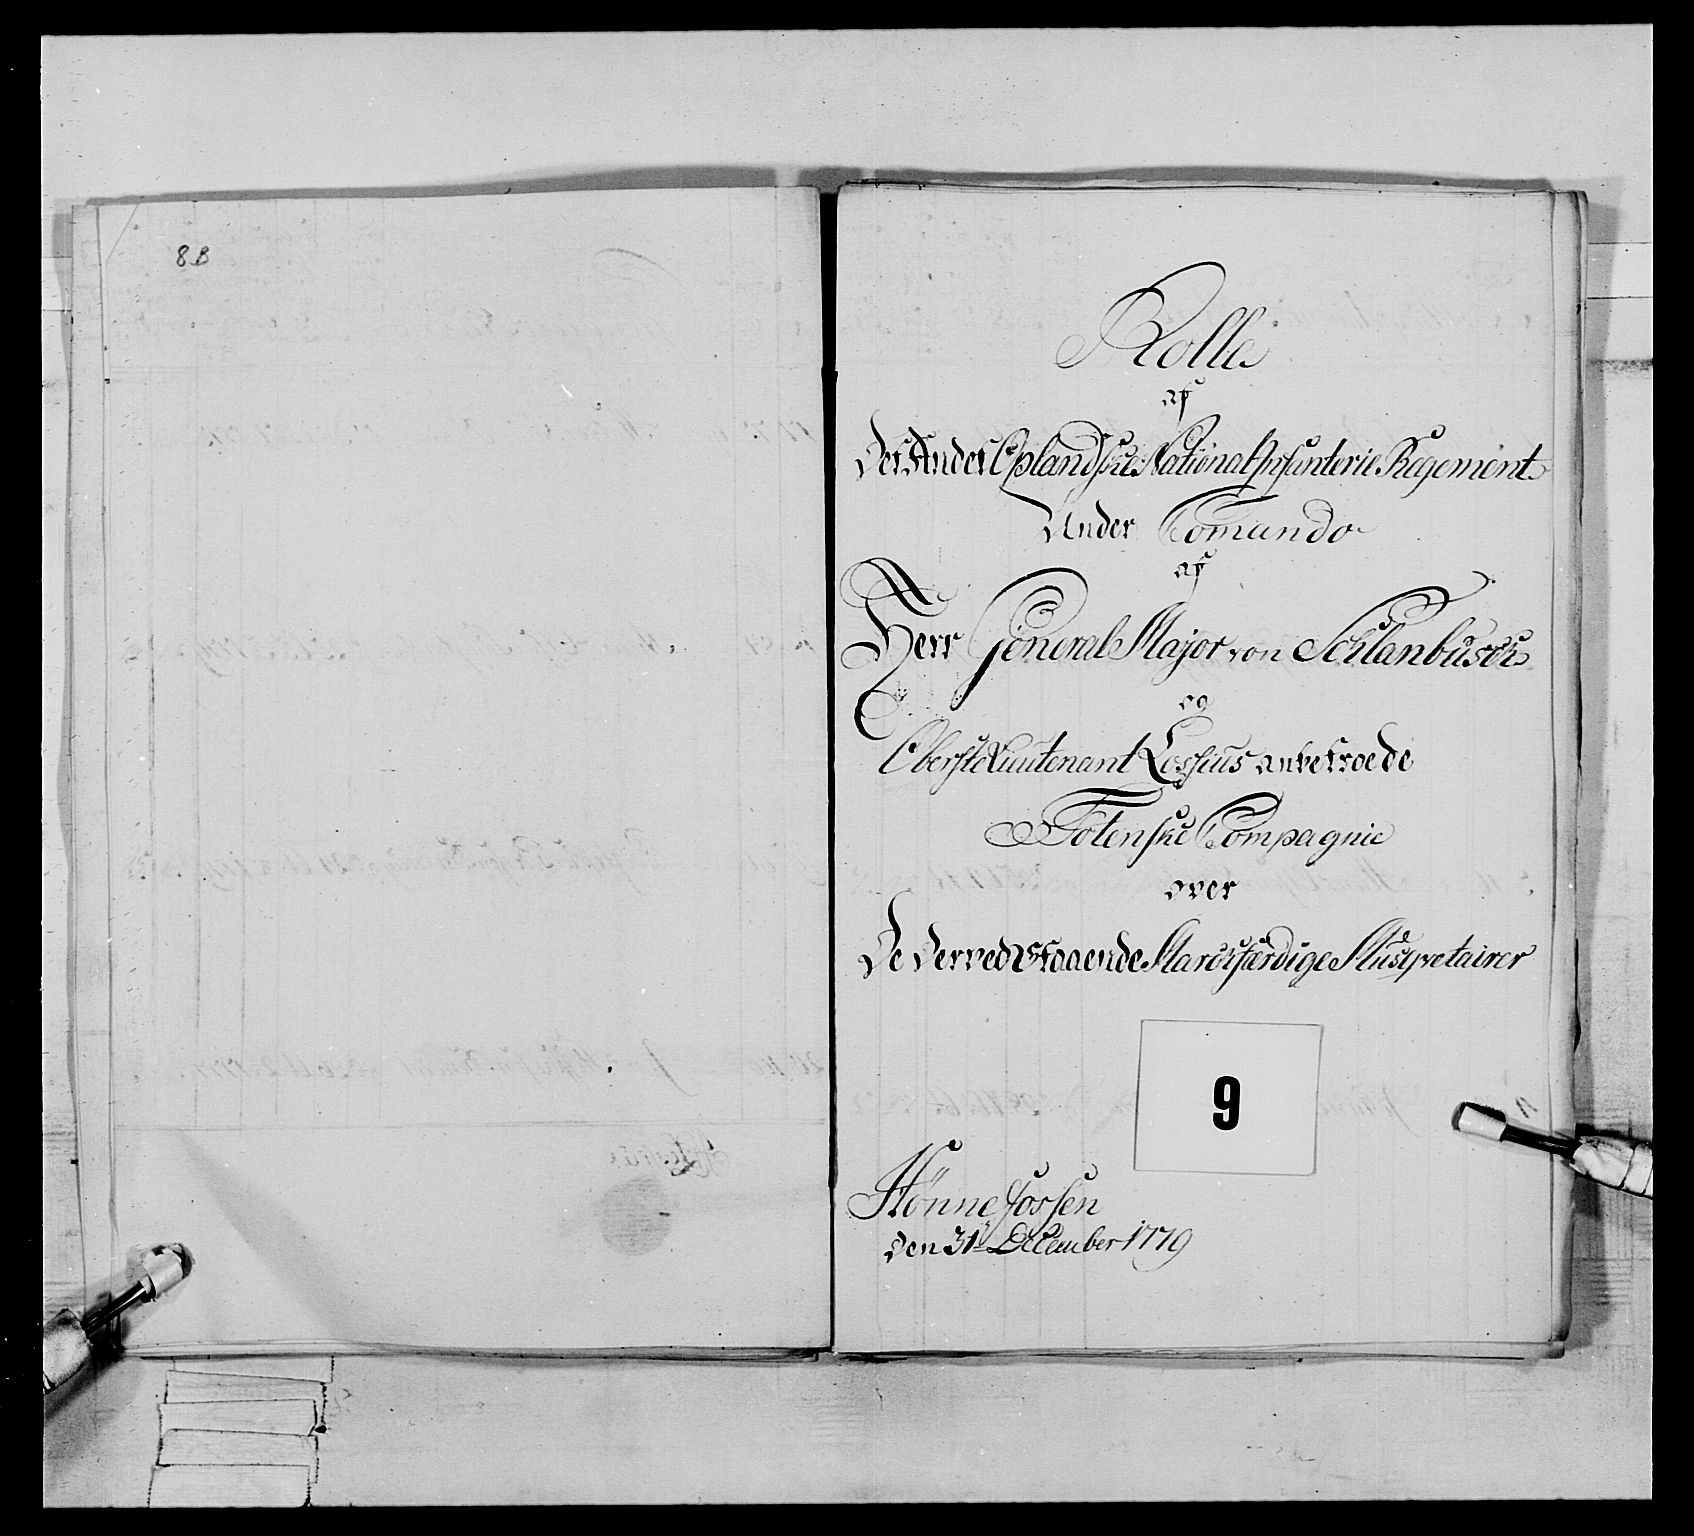 8B
Rolle
af
Det Andet Oplandske National Infanterie Regement
Under Comando
af
Herr General Major von Schlanbusch
og
Oberste Lieutenant Lossius anbetroede
Totenske Compagnie
over
De Derved Staaende Marchfærdige Musqvetairer
9
Hönnefossen
den 31te December 1779